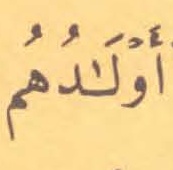 أَوْلَٰدُهُمْ